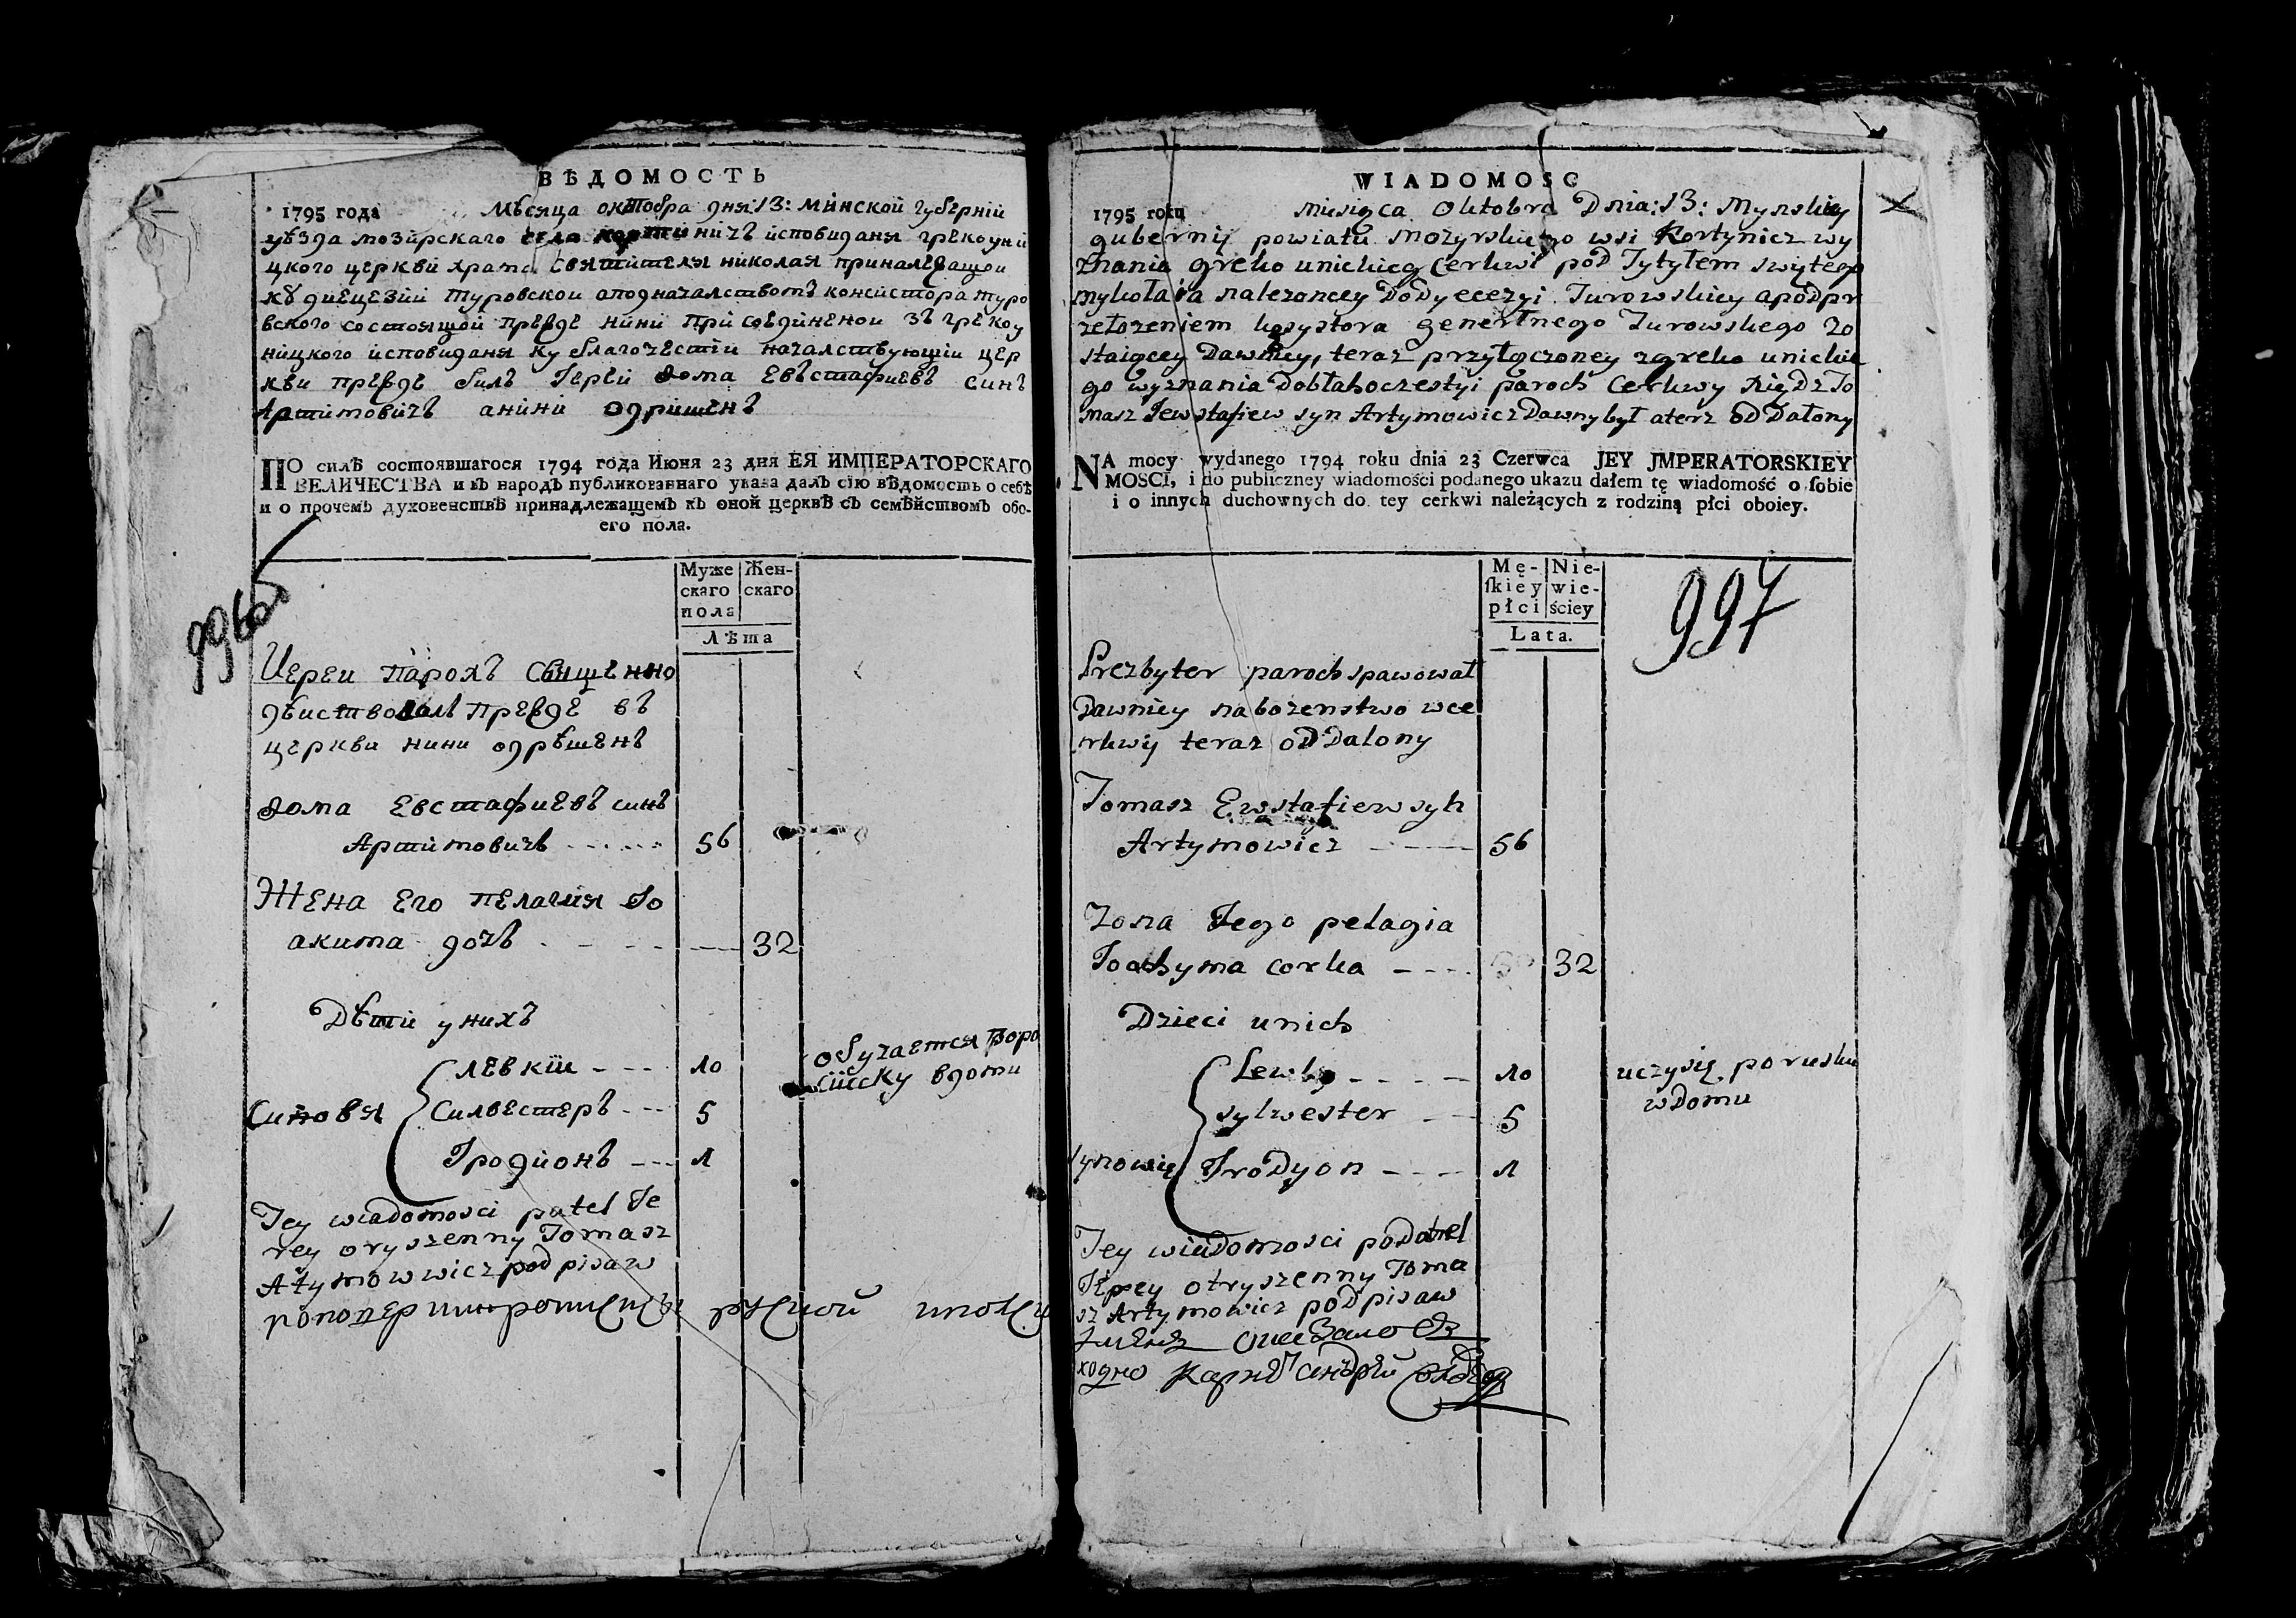 ВѢДОМОСТЬ
1795 года Мѣсяца октобра дня: 13: минской губернiи
уѣзда мозирскаго села кортиничъ исповиданя грекоуни
цкого церкви храма святителя николая приналежащои
къ диецезiи туровскои аподначалством консистора туро
вского состоящои прежде нини при соединенои зъ греко у
ницкого исповиданя ку благочестiи началствующiи цер
кви прежде билъ Iереи Фома Евстафиевъ синъ
Артимовичъ анини одришенъ
ПО силѣ состоявшагося 1794 года Июня 23 дня ЕЯ ИМПЕРАТОРСКАГО
ВЕЛИЧЕСТВА и въ народъ публикованнаго указа далъ сiю вѣдомость о себѣ
и о прочемъ духовенствѣ принадлежащемъ къ оной церквѣ съ семѣйствомъ обо-
его пола.
Муже Жен-
скаго скаго
пола
Лѣта
996
Иереи парохъ священно
дѣиствовалъ прежде въ
церкви нини одрѣшенъ
Фома Евстафиевъ синъ
Артимовичъ 56
Жена Его пелагия Iо
акима дочъ 32
Дѣти у нихъ
Левкiи 10 обучается поро
сiиску вдоми
Синовя Силвестеръ 5
Iродионъ 1
Tey wiadomosci patel Je
rey oryszenny Tomasz
Atymowwicz podpisaw
WIADOMOSC
1795 roku miesiąca Oktobra Dnia: 13: Mynskiey
gubernij powiatu Mozyrskiego wsi Kortynicz wy
znania greko unickieg Cerkwi pod Tytyłem swytego
mykołaia nalezoncey Do Dyecezyi Turowskiey apodpr
zełozeniem kosystora generłnego Turowskiego zo
staiącey Dawniey, teraz przyłączoney zgreko unickie
go wyznania Dobłahoczestyi paroch Cerkwy xiędz To
masz Jewstafiew syn Artymowicz Dawny był aterz odDałony
NA mocy wydanego 1794 roku dnia 23 Czerwca JEY JMPERATORSKIEY
MOSCI, i do publiczney wiadomości podanego ukazu dałem tę wiadomość o sobie
i o innych duchownych do tey cerkwi należących z rodziną płci oboiey.
Mę- Nie-
skiey wie-
płci ściey
Lata.
997
Prezbyter paroch spawował
Dawniey nabozenstwo wce
rkwij teraz odDalony
Tomasz Ewstafiew syn
Artymowicz 56
Zona Jego pelagia
Joachyma corka 32
Dzieci unich
Lewky 10 uczysię porusku
wDomu
Synowię sylwester 5
JroDyon 1
Tey wiadomosci poDatel
Jerey otryszenny Toma
sz Artymowicz podpisaw